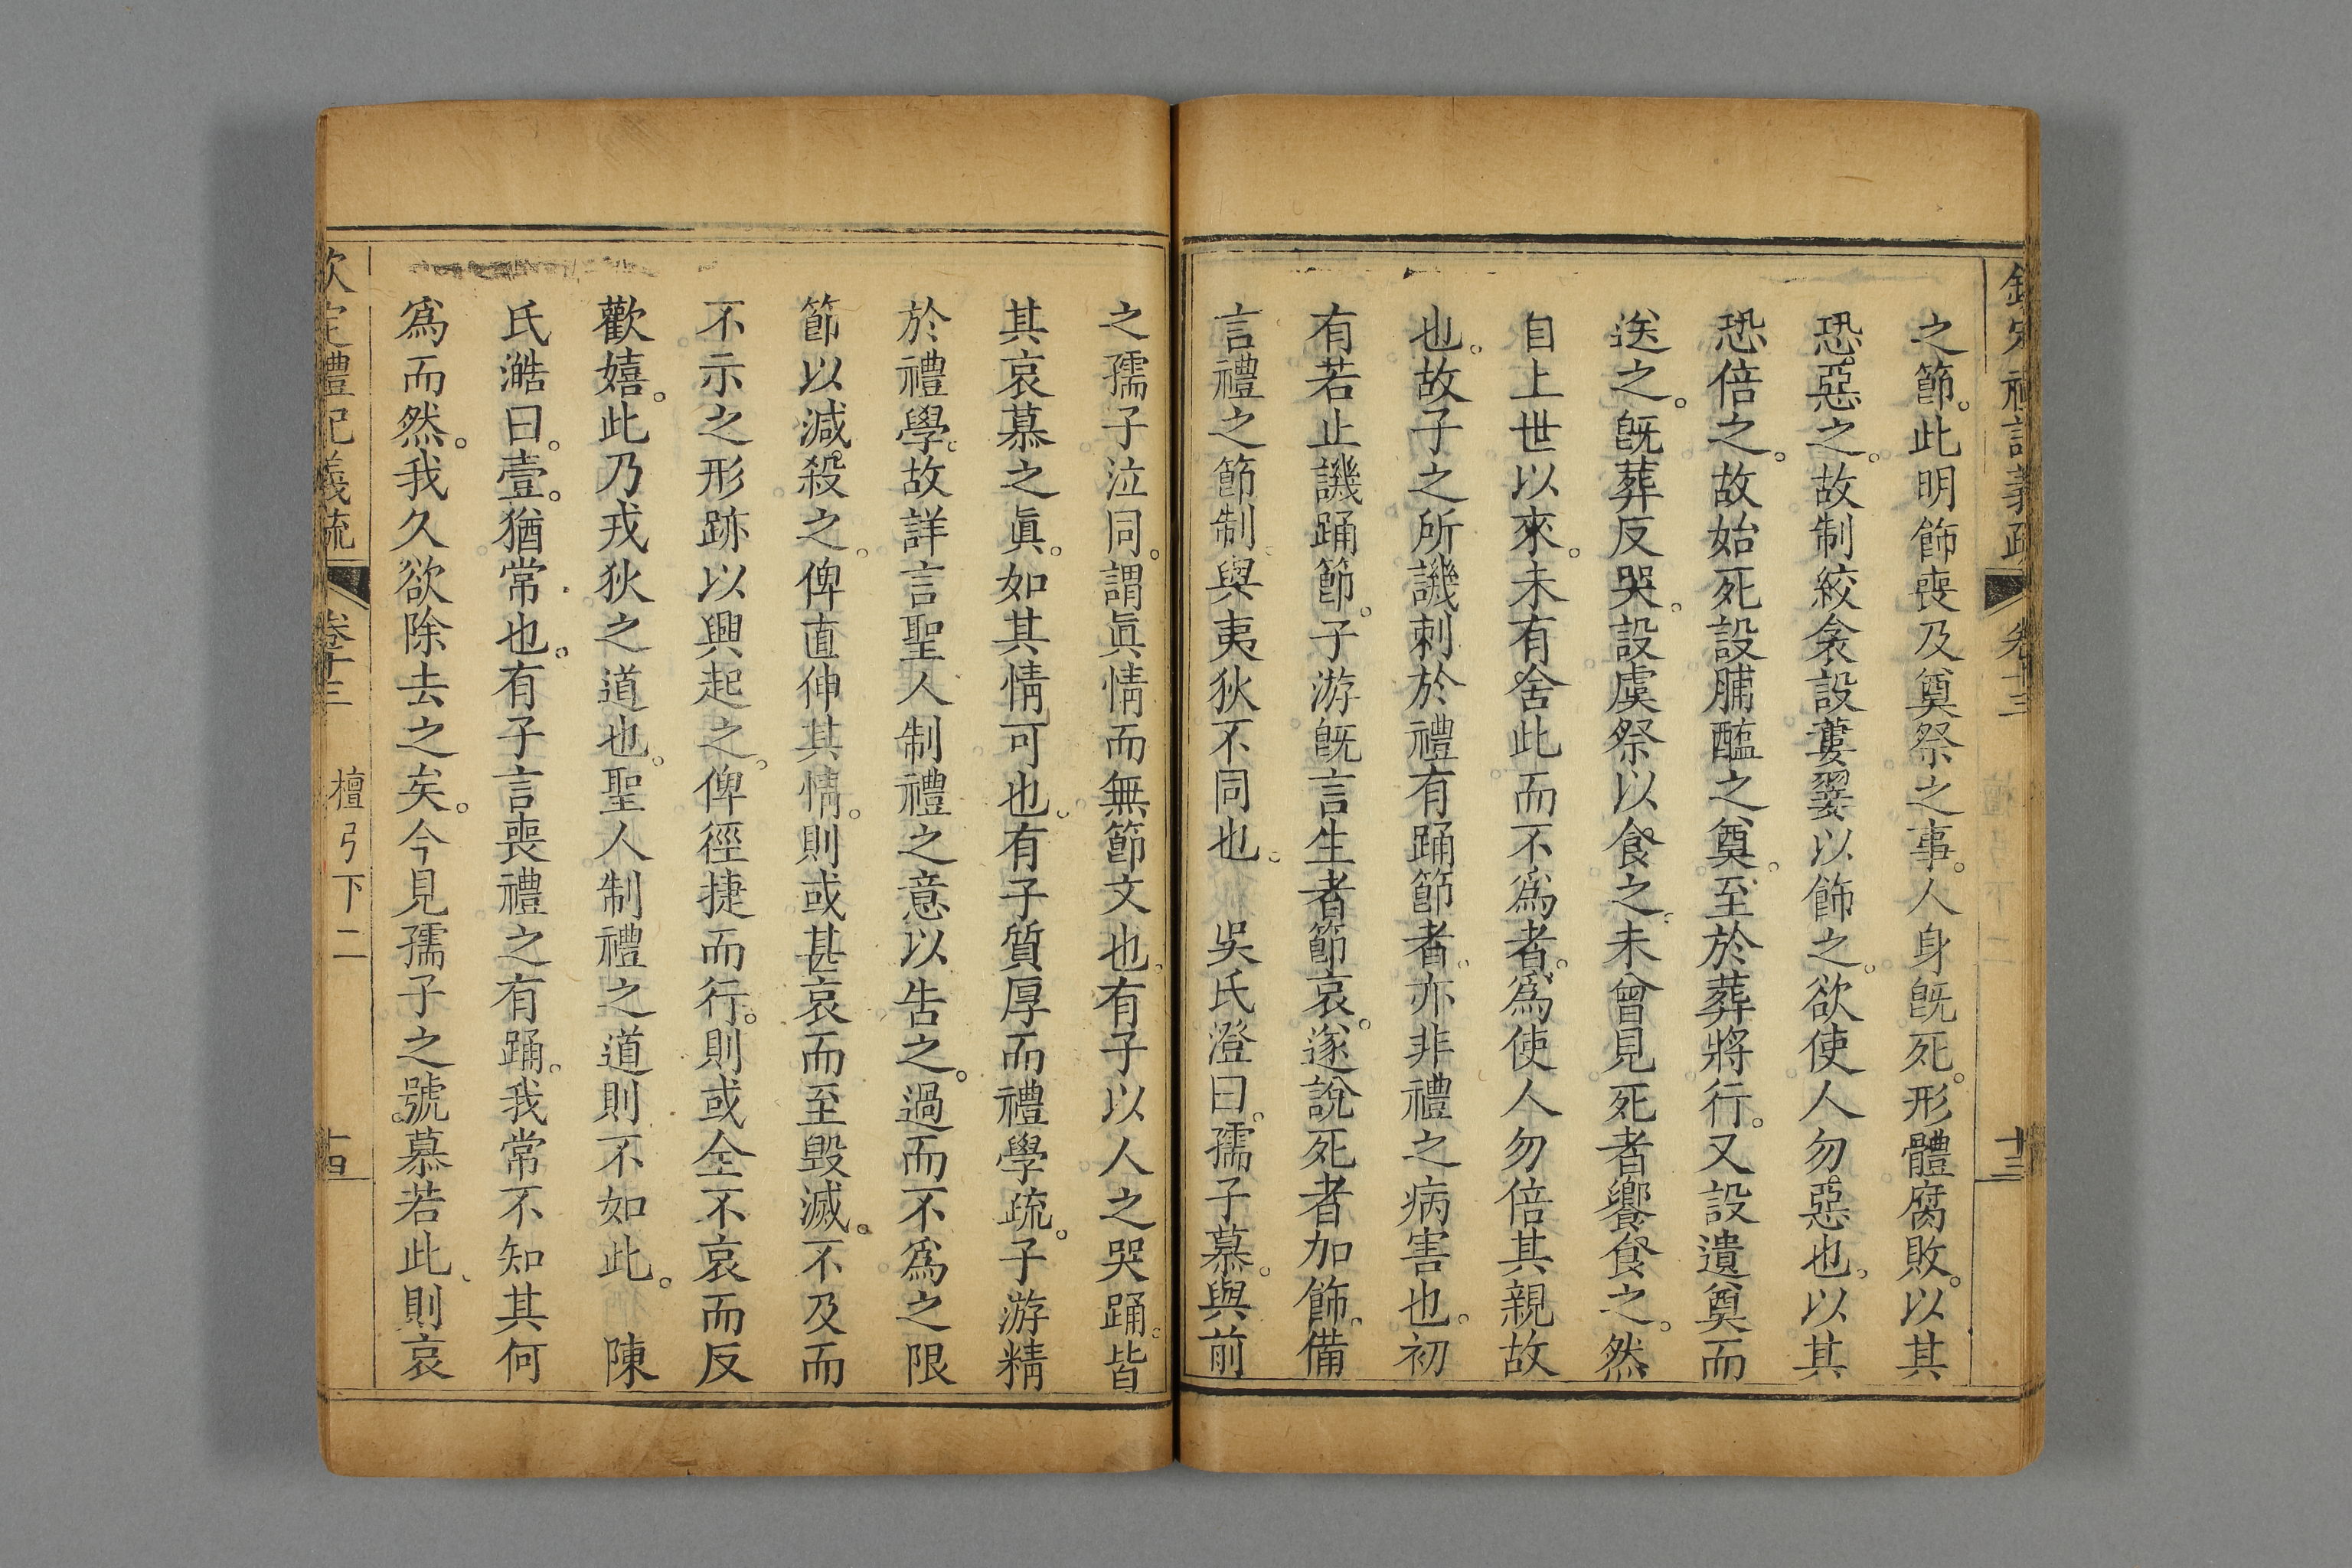 之節。此明飾喪及奠祭之事。人身旣死。形體腐敗。以其
恐惡之。故制絞衾設蔞翣以飾之。欲使人勿惡也。以其
恐倍之。故始死設脯醢之奠。至於葬將行。又設遣奠而
送之。旣葬反哭。設虞祭以食之。未曾見死者饗食之。然
自上世以來。未有舍此而不爲者。爲使人勿倍其親故
也。故子之所譏刺於禮有踊節者。亦非禮之病害也。初
有若止譏踊節。子游旣言生者節哀。遂說死者加飾。備
言禮之節制。與夷狄不同也。 吳氏澄曰。孺子慕。與前
之孺子泣同。謂眞情而無節文也。有子以人之哭踊。皆
其哀慕之眞。如其情可也。有子質厚而禮學疏。子游精
於禮學。故詳言聖人制禮之意以告之。過而不爲之限
節以減殺之。俾直伸其情。則或甚哀而至毀滅。不及而
不示之形跡以興起之。俾徑捷而行。則或全不哀而反
歡嬉。此乃戎狄之道也。聖人制禮之道則不如此。 陳
氏澔曰。壹。猶常也。有子言喪禮之有踊。我常不知其何
爲而然。我久欲除去之矣。今見孺子之號慕若此。則哀
欽定禮記義疏 卷十三 檀弓下二 十四